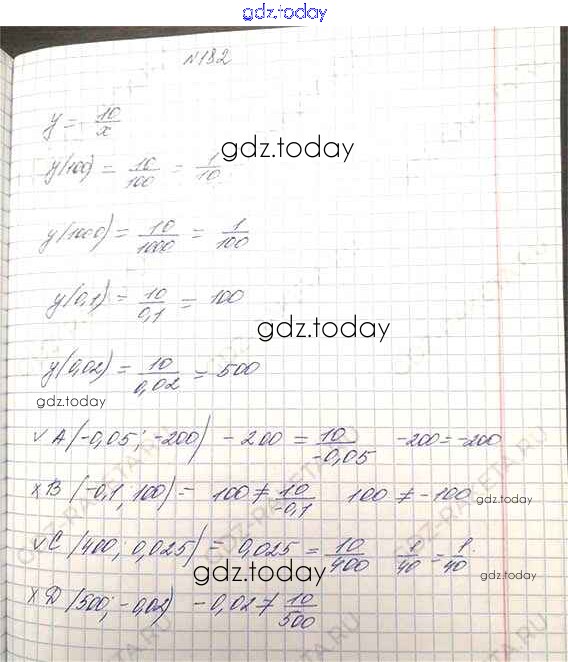 gdz.today
№182
y = 10/x
y(100) = 10/100 = 1/10
gdz.today
y(1000) = 10/1000 = 1/100
y(0,1) = 10/0,1 = 100
gdz.today
y(0,02) = 10/0,02 = 500
gdz.today
v A (-0,05; -200) -200 = 10/-0,05 -200 = -200
x B (-0,1; 100) = 100 ≠ 10/-0,1 100 ≠ -100
gdz.today
v C (400; 0,025) = 0,025 = 10/400 1/40 = 1/40
gdz.today gdz.today
x D (500; -0,02) -0,02 ≠ 10/500